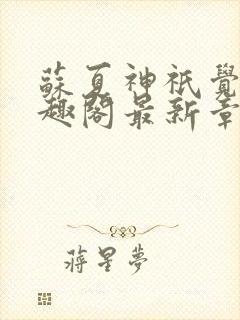 蘇夏神祇覺
趣閣最新章
蔣星夢